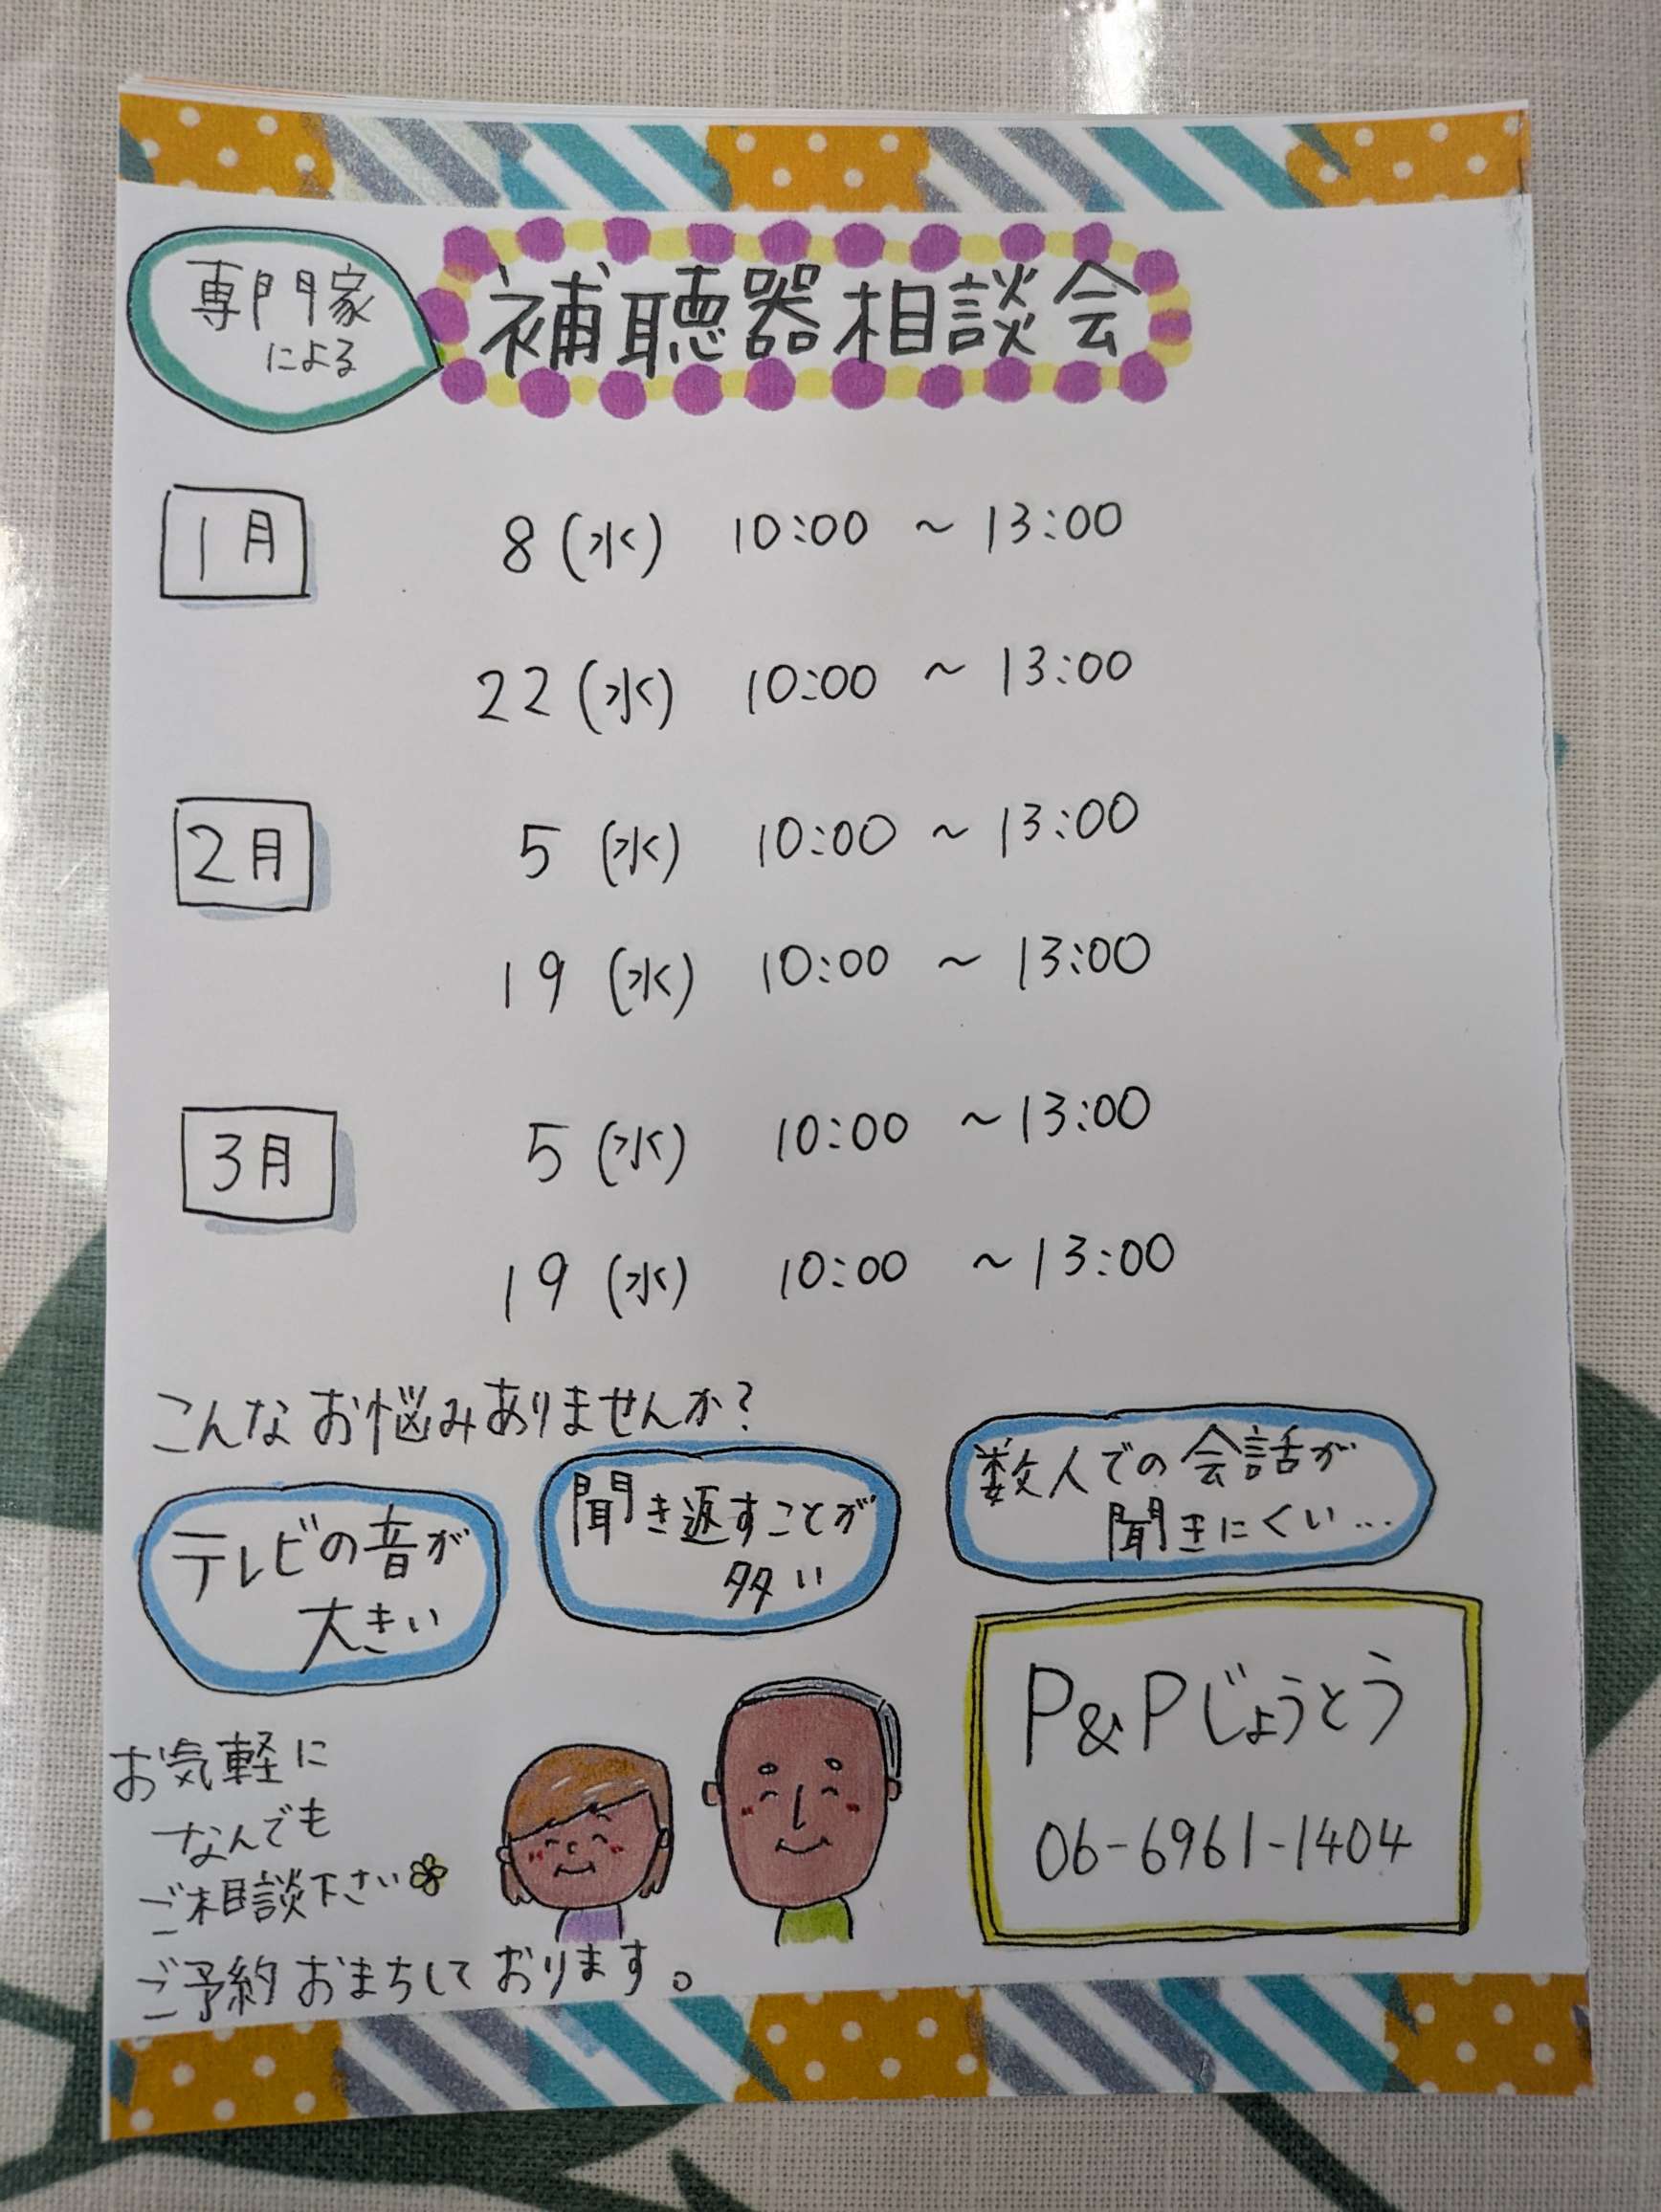 専門家
による
補聴器相談会
1月
8(水) 10:00 ~ 13:00
22(水) 10:00 ~ 13:00
2月
5(水) 10:00 ~ 13:00
19(水) 10:00 ~ 13:00
3月
5(水) 10:00 ~ 13:00
19(水) 10:00 ~ 13:00
こんなお悩みありませんか?
テレビの音が
大きい
聞き返すことが
多い
数人での会話が
聞きにくい...
お気軽に
なんでも
ご相談下さい
ご予約おまちしております。
P&Pじょうとう
06-6961-1404